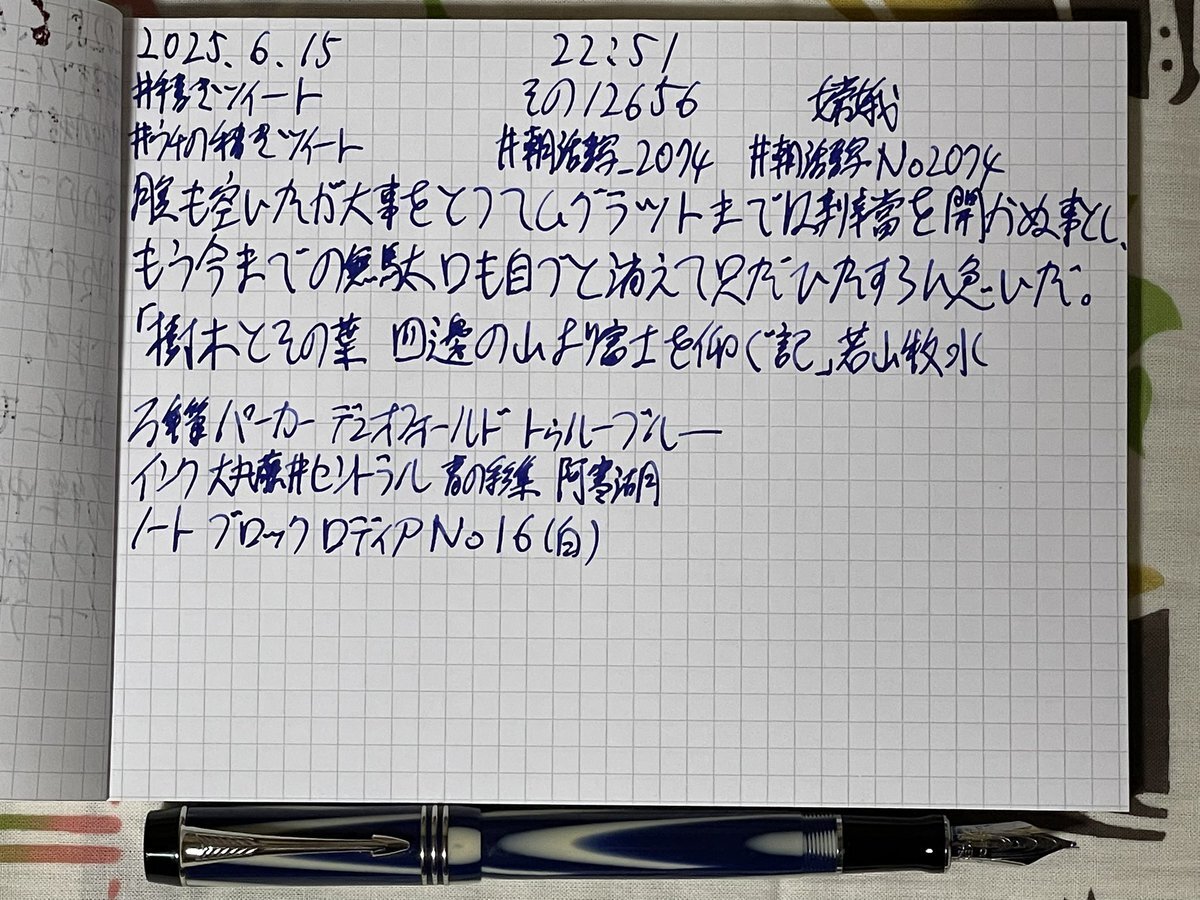 2025.6.15 22:51
#手書きツイート その12656 嫦娥
#うちの手書きツイート #朝活書写_2074 #朝活書写No2074
腹も空いたが大事をとつてムグラットまでは辨當を開かぬ事とし、
もう今までの無駄口も自づと消えて只だひたすらに急いだ。
「樹木とその葉 四邊の山より富士を仰ぐ記」若山牧水
万年筆 パーカー デュオフォールド トゥルーブルー
インク 大丸藤井セントラル 青の彩集 阿寒湖月
ノート ブロックロディアNo16(白)